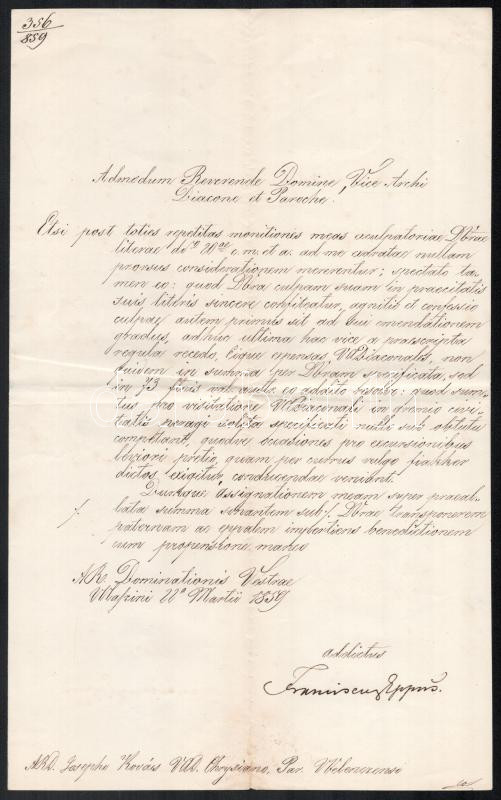 356
859
Admodum Reverende Domine, Vice Archi
Diacone et Paroche.
Etsi post toties repetitas monitiones meas exculpatoriae Dbrae
literae dto 20ae c. m. et a. ad me datae nullam
prorsus considerationem mererentur; spectato ta-
men eo: quod Dbra culpam suam in praecitatis
suis literis sincere confiteatur, agnitio et confessio
culpae autem primus sit ad sui emendationem
gradus, adhuc ultima hac vice a praescripta
regula recedo, Eique expensas VADiaconales, non
quidem in summa per Dbram specificata, sed
in 73 addito resolvi: quod sum-
tus pro visitatione VADiaconali in gremio civi-
tatis peragi specificati nullo sub obtutu
competant, quodve occasiones pro excursionibus
leviori pretio, quam per currus vulgo fiakker
dictos exigitur, conducendae veniant.
Dumque assignationem meam super praeal-
lata summa sonantem sub ·/. Dbrae transponerem
·/.
paternam ac eppalem impertiens benedictionem
cum propensione maneo
AR. Dominationis Vestrae
22a Martii 1859
addictus
Franciscus Eppus.
ARD. Josepho Kovács VAD. Chrysiano, Par. Vélenczensi